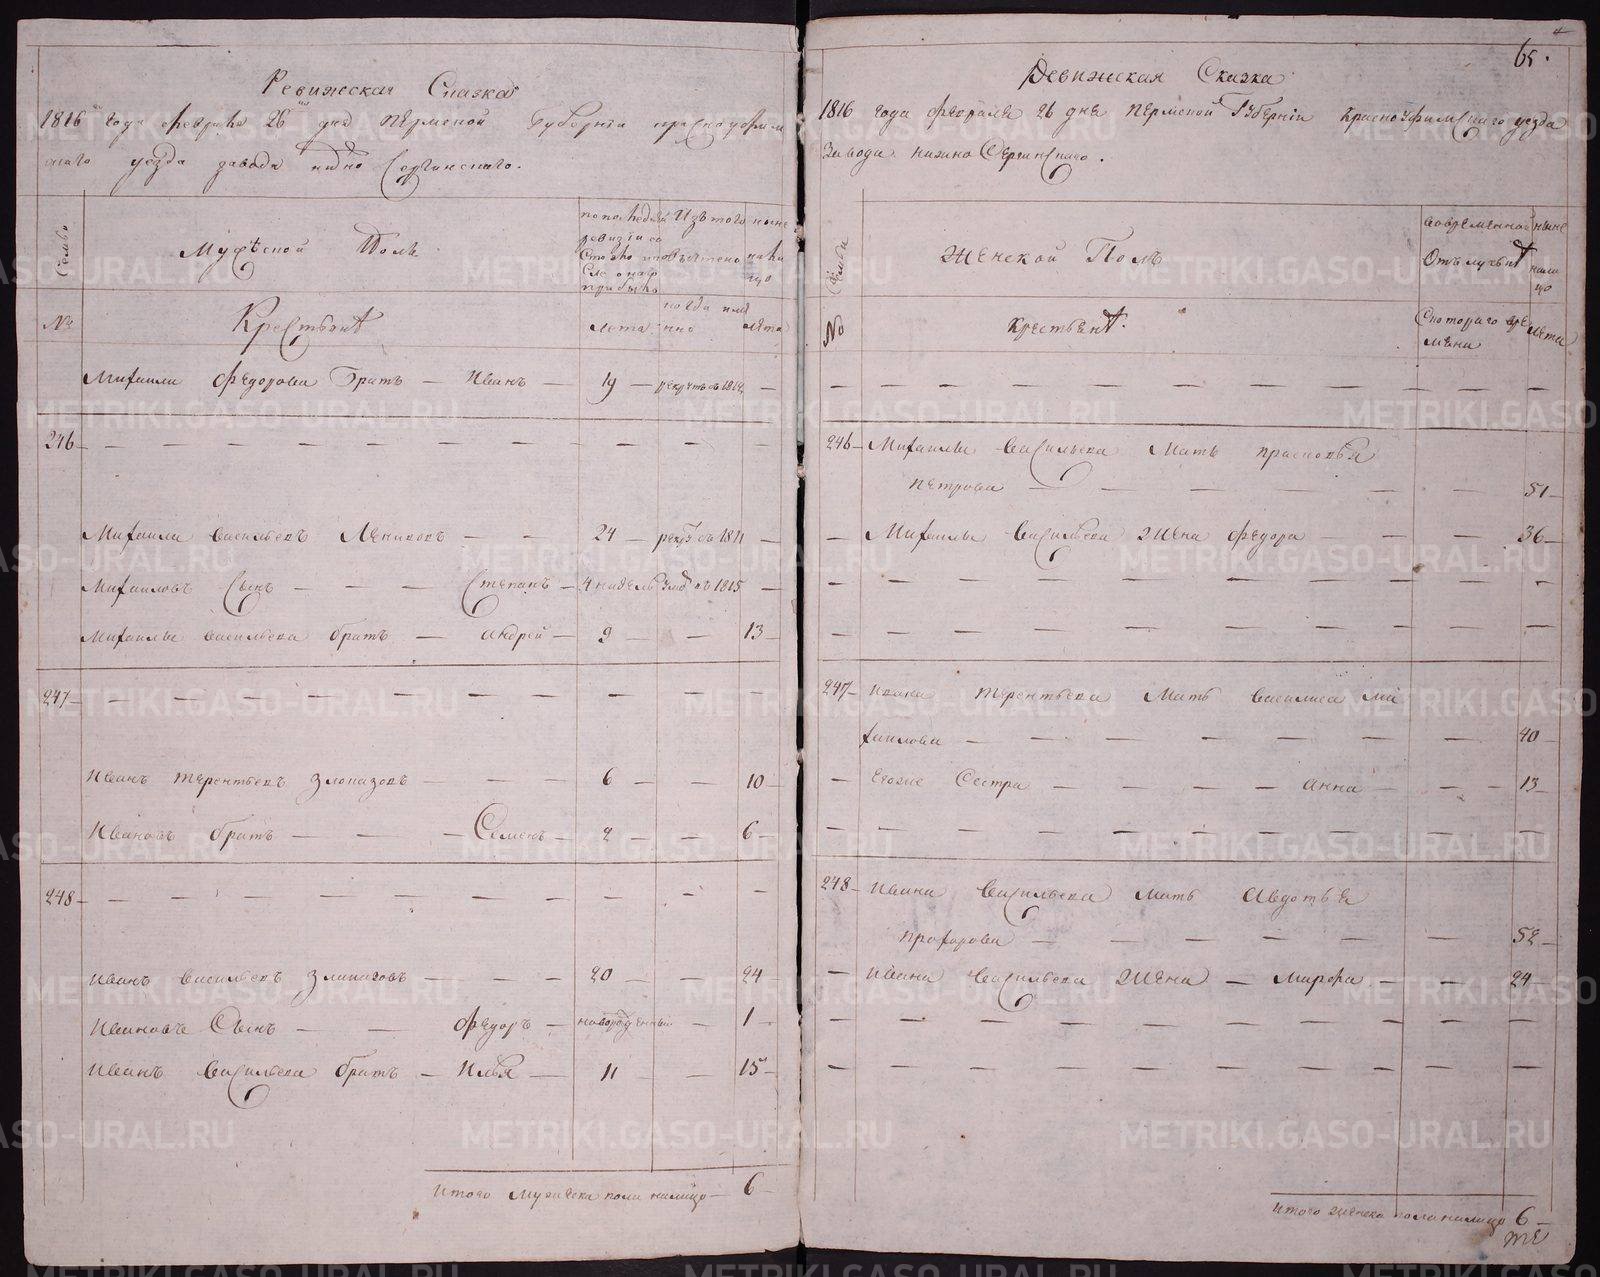 Ревижская Сказка
1816 года февраля 26 дня пермской Губернии красноуфим
скаго уезда завода нижно Сергинского.
Семьи
Мужеской Полъ
по последней ревизии состояло и после онаго прибыло
Изъ того выбыло
ныне на лицо
№
Крестьянѣ
лета
когда имянно
лета
Михаила Федорова Братъ — Иванъ — 19 — рекрутъ въ 1812 —
246 — — — — — — — — — —
Михаила Васильевъ Лениковъ — — 24 — рекрутъ въ 1811 —
Михаиловъ Сынъ — — — Степанъ — 4 недель въ 1815 —
Михаилы Васильева братъ — андрей — 9 — — 13 —
247 — — — — — — — — — —
Иванъ Терентьевъ Злоказовъ — — — 6 — — 10 —
Ивановъ братъ — — — Семенъ — 2 — — 6 —
248 — — — — — — — — — —
Иванъ Васильевъ Злыгаговъ — — — 20 — — 24 —
Ивановъ Сынъ — — Федоръ — новорожденный — 1 —
Иванъ Васильева братъ — Илья — 11 — — 15 —
Итого Мужеска пола налицо — 6 —
65.
Ревижская Сказка
1816 года февраля 26 дня пермской Губернiи Красноуфимскаго уезда
Завода нижно Сергинскаго.
Семьи
Женской Полъ
во временной Отълучкѣ
ныне налицо
№
крестьянѣ.
Скотораго времени
лета
— — — — — — — — — — —
246 — Михаилы Васильева Мать прасковья
петрова — — — — — — — 51 —
— Михаилы Васильева Жена Федора — — — 36 —
— — — — — — — — — — —
— — — — — — — — — — —
247 — Ивана Терентьева Мать Василиса Ми
хаилова — — — — — — — — 40 —
— Егоже Сестра — — — — Анна — — — 13 —
— — — — — — — — — — —
248 — Ивана Васильева Мать Авдотья
прохорова — — — — — — — 52 —
— Ивана Васильева Жена — Марфа — — 24 —
— — — — — — — — — — —
— — — — — — — — — — —
Итого женска пола налицо 6 —
METRIKI.GASO-URAL.RU